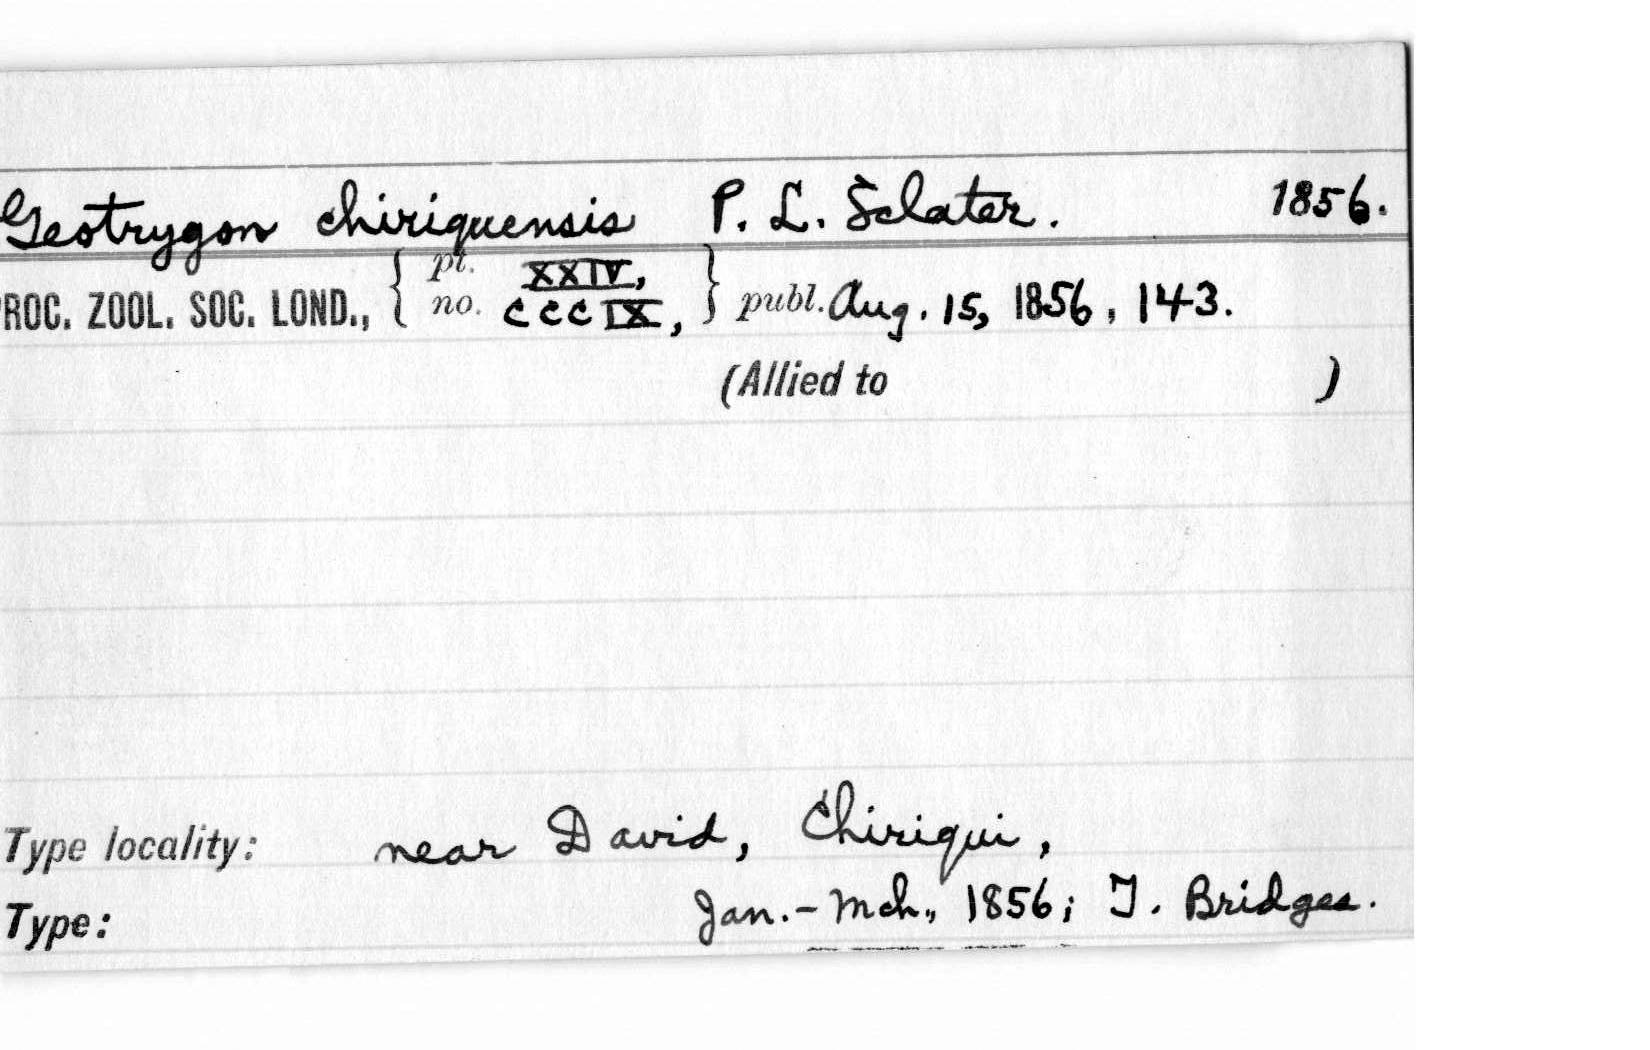 Geotrygon chiriquensis P. L. Sclater. 1856.
ROC. ZOOL. SOC. LOND., { pt. XXIV, no. CCCIX, } publ. Aug. 15, 1856, 143.
(Allied to )
Type locality: near David, Chiriqui,
Type: Jan.-Mch., 1856; T. Bridges.